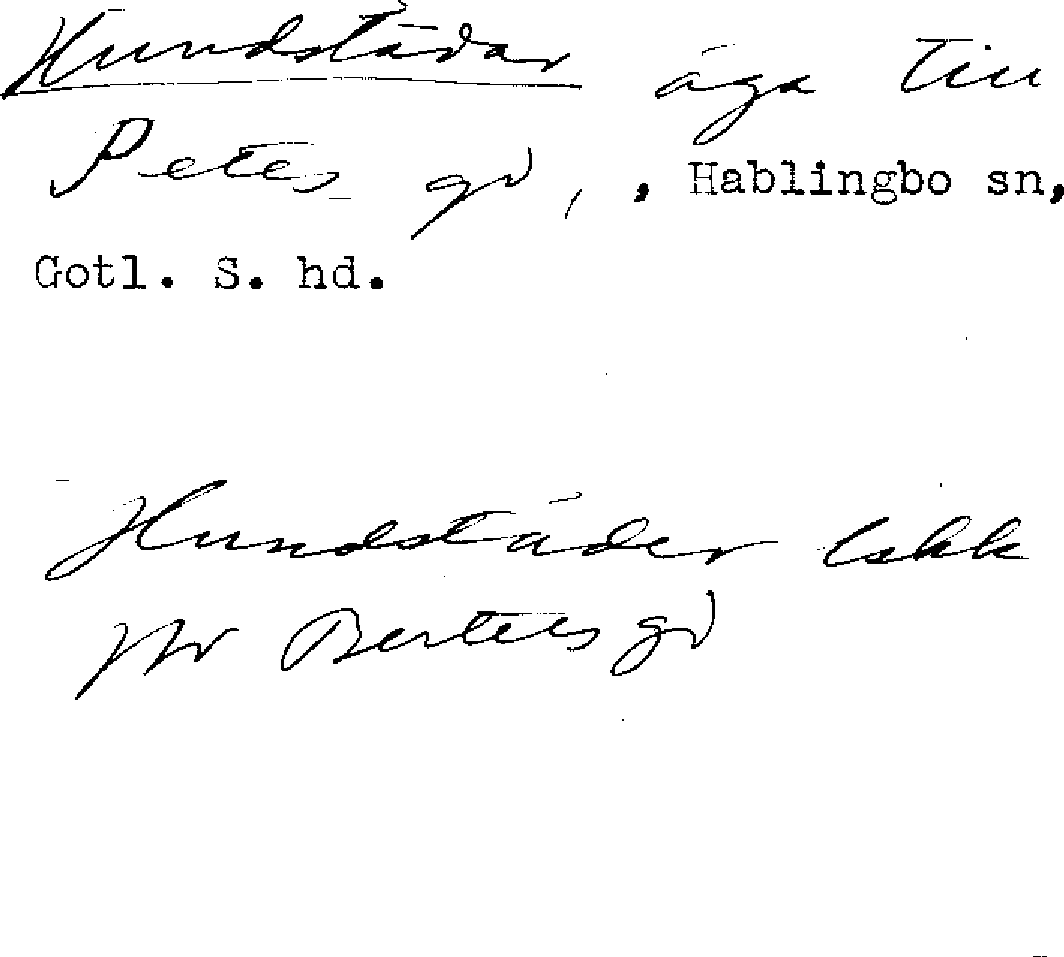 Hundstädar äga till
Petes gd, , Hablingbo sn,
Gotl. S. hd.
Hundstäder Lskk
för Bertels gd